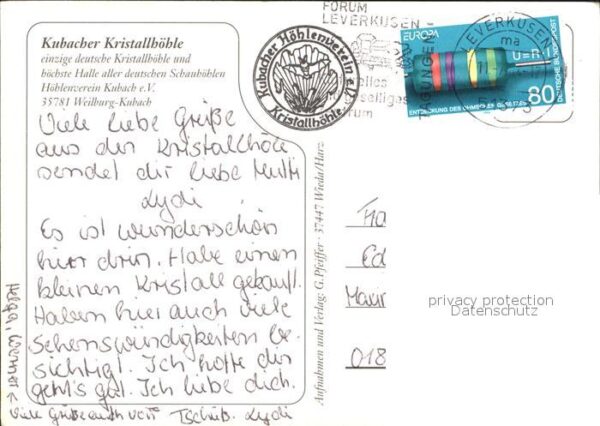 Kubacher Kristallhöhle
einzige deutsche Kristallhöhle und
höchste Halle aller deutschen Schauhöhlen
Höhlenverein Kubach e.V.
35781 Weilburg-Kubach
Viele liebe Grüße
aus der Kristallhöle
sendet dir liebe Mutti
Lydi
Es ist wunderschön
hier drin. Habe einen
kleinen Kristall gekauft.
Haben hier auch viele
Sehenswürdigkeiten be-
sichtigt. Ich hoffe dir
geht's gut. Ich liebe dich.
Tschüß. Lydi
Viele Grüße auch von
Helga, Werner
Aufnahmen und Verlag: G. Pfeiffer · 37447 Wieda/Harz
Kubacher Höhlenverein e.V.
Kristallhöhle
FORUM
LEVERKUSEN -
TAGUNGEN
LEVERKUSEN
EUROPA
U=R·I
ENTDECKUNG DES OHMSCHEN GESETZES
80
DEUTSCHE BUNDESPOST
Ed
Maur
018
privacy protection
Datenschutz